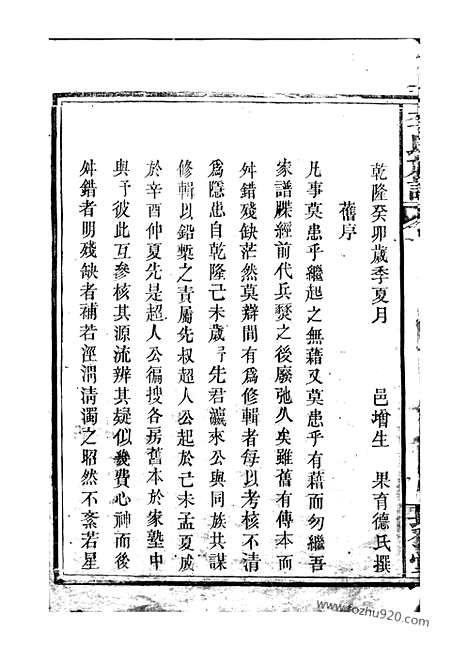 乾隆癸卯歲季夏月 邑增生 果育德氏撰
舊序
凡事莫患乎繼起之無藉又莫患乎有藉而勿繼吾
家譜牒經前代兵燹之後廢弛久矣雖舊有傳本而
舛錯殘缺茫然莫辯間有為修輯者每以考核不清
為隱患自乾隆己未歲 先君瀛來公與同族共謀
修輯以鉛槧之責屬先叔超人公起於己未孟夏成
於辛酉仲夏先是超人公徧搜各房舊本於家塾中
與予彼此互參核其源流辨其疑似幾費心神而後
舛錯者明殘缺者補若涇渭清濁之昭然不紊若星
www.fozhu920.com